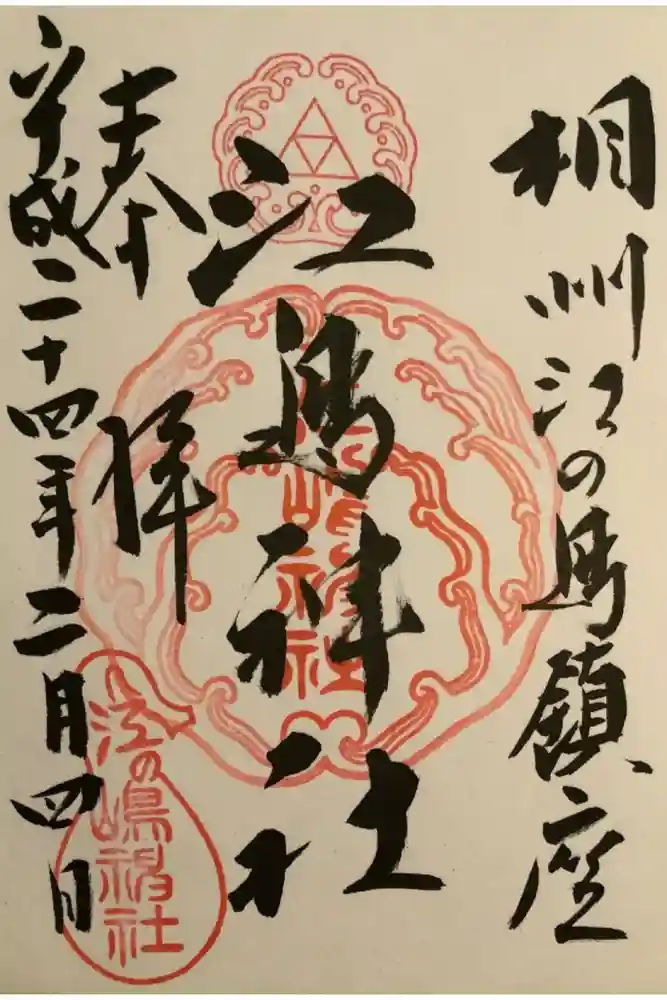 相州江の島鎮座
江島神社
奉拝
平成二十四年二月四日
江の嶋神社